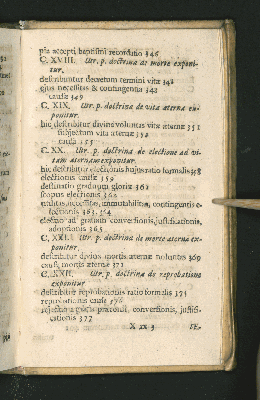 pia accepti baptismi recordatio 346
C. XVIII. Ur. p. doctrina de morte exponi-
tur.
describuntur decretum termini vitæ 348
ejus necessitas & contingentia 348
causæ 349
C. XIX. Ur. p. doctrina de vita æterna ex-
ponitur.
hic describitur divini voluntas vitæ æternæ 351
subjectum vitæ æternæ
causæ 355
C. XX. Ur. p. doctrina de electione ad vi-
tam æternam exponitur.
hic describitur electionis hujus ratio formalis 358
electionis causæ 359
destinatio graduum gloriæ 361
scopus electionis
necessitas, immutabilitas, contingentia e-
lectionis 363. 364
electio ad gratiam conversionis, justificationis,
adoptionis 365
C. XXI. Ur. p. doctrina de morte æterna ex-
ponitur.
describitur divina mortis æternæ voluntas 369
causæ mortis æternæ 371
C. XXII. Ur. p. doctrina de reprobatione
exponitur
describitur reprobationis ratio formalis 375
reprobationis causæ 376
rejectio a gratia conversionis, justifi-
cationis 377
X xx 3